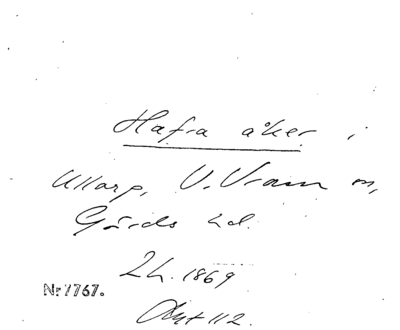 Hafra åker i
Ullarp, V. Vram sn,
Gärds hd.
2h. 1869
Nr 7767.
Akt 112.